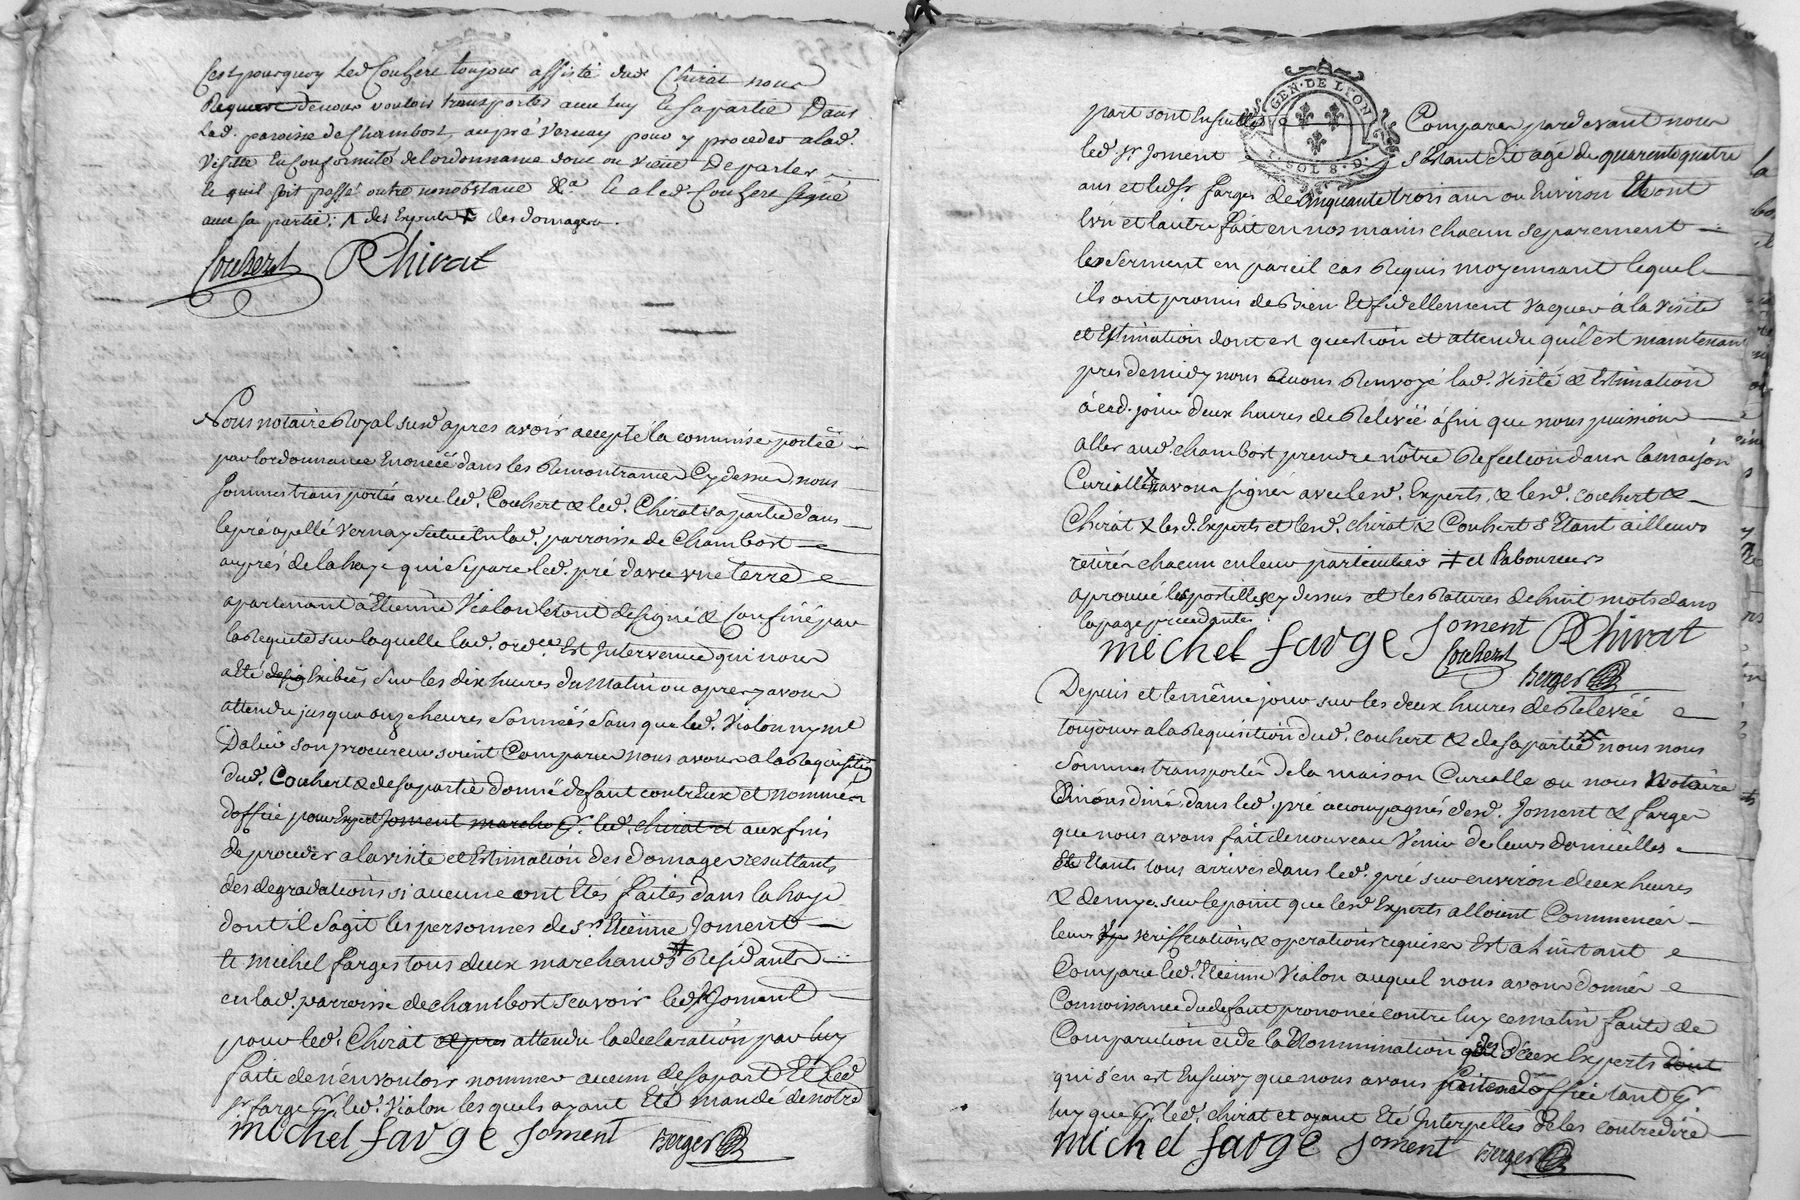 C'est pourquoy led Couhert toujours assisté dud Chirat nous
Requiert de nous vouloir transporter avec luy & sa partie Dans
Lad. paroisse de Chambost, au pré Vernay pour y proceder a lad.
Visitte En Conformité de l'ordonnance dont on vient De parler
& quil soit passé outre nonobstant &a & a led. Couhert signé
avec sa partie: des Experts des domages.
Couhert PChirat
Nous notaire Royal susd apres avoir accepté la commise portée
par lordonnance Enoncée dans les Remontrances Cy dessus nous
sommes transportés avec led. Couhert & led. Chirat sa partie dans
le pré appellé Vernay Scitué En lad. parroisse de Chambost
auprés de la haye qui Separe led. pré davec une terre
apartenant a Etienne Vialon le tout designé & Confiné par
la Requete sur laquelle lad. ordce Est Intervenue qui nous
a été Exibée, Sur les dix heures du Matin ou apres y avoir
attendu jusqua onze heures Sonnées Sans que led. Vialon ny me
Dalin son procureur soient Comparus nous avons a la Requisition
dud. Couhert & de sa partie donné defaut contr'Eux et nommé
d'office pour Expert Joment marche pr. led. chirat et aux fins
de proceder a la visite et Estimation des domages resultants
des degradations si aucune ont Etés faites dans la haye
dont il Sagit les personnes de Srs Etienne Joment
& Michel farges tous deux marchands # Residants
en lad. parroisse de chambost scavoir led Sr Joment
pour led. Chirat & pres attendu la declaration par luy
faite de n'en vouloir nommer aucun de sa part Et led
Sr. farge pr. led. Vialon lesquels ayant Eté mandé de notre
michel farge Joment Berger
part sont Ensuitte Comparus pardevant nous
GEN. DE LYON
2. SOLS. D.
led. Sr Joment s'Etant dit agé de quarente quatre
ans et led Sr. farges de Cinquante trois ans ou Environ Et ont
lun et l'autre fait en nos mains chacun separement
le serment en pareil cas Requis moyennant lequel
ils ont promis de Bien Et fidellement Vaquer à la Visite
et Estimation dont est question et attendu qu'il est maintenant
pres de midy nous avons Renvoyé lad. Visite & Estimation
à ced. jour deux heures de Relevéé afin que nous puissions
aller aud. chambost prendre nôtre Refection dans la maison
Curialle avons signés avec lesd. Experts, & lesd. couhert &
Chirat x les d. Experts et lesd. chirat & Couhert s'Etant ailleurs
retirés chacun en leur particulier # et Laboureurs
aprouvé les apostilles cy dessus et les Ratures de huit mots dans
la page precedante
michel farge Joment PChirat
Couhert Berger
Depuis et le même jour sur les deux heures de Relevéé
toujours a la Requisition dud. couhert & de sa partie nous nous
Sommes transportés de la maison Curialle ou nous Notaire
avons diné, dans led. pré acompagnés desd. Joment & farges
que nous avons fait de nouveau Venir de leurs domicilles
Et Etants tous arrivés dans led. pré sur environ deux heures
& demye. sur le point que lesd Experts alloient Commencer
leurs veriffications & operations requises Est a l'instant
Comparu led. Etienne Vialon auquel nous avons donnés
Connoissance du defaut prononcé contre luy ce matin faute de
Comparution et de la Nommination des deux Experts dont
qui s'en est Ensuivy que nous avons faite d'office tant pr.
luy que pr. led. chirat et ayant Eté Interpellés de les contredire
michel farge Joment Berger